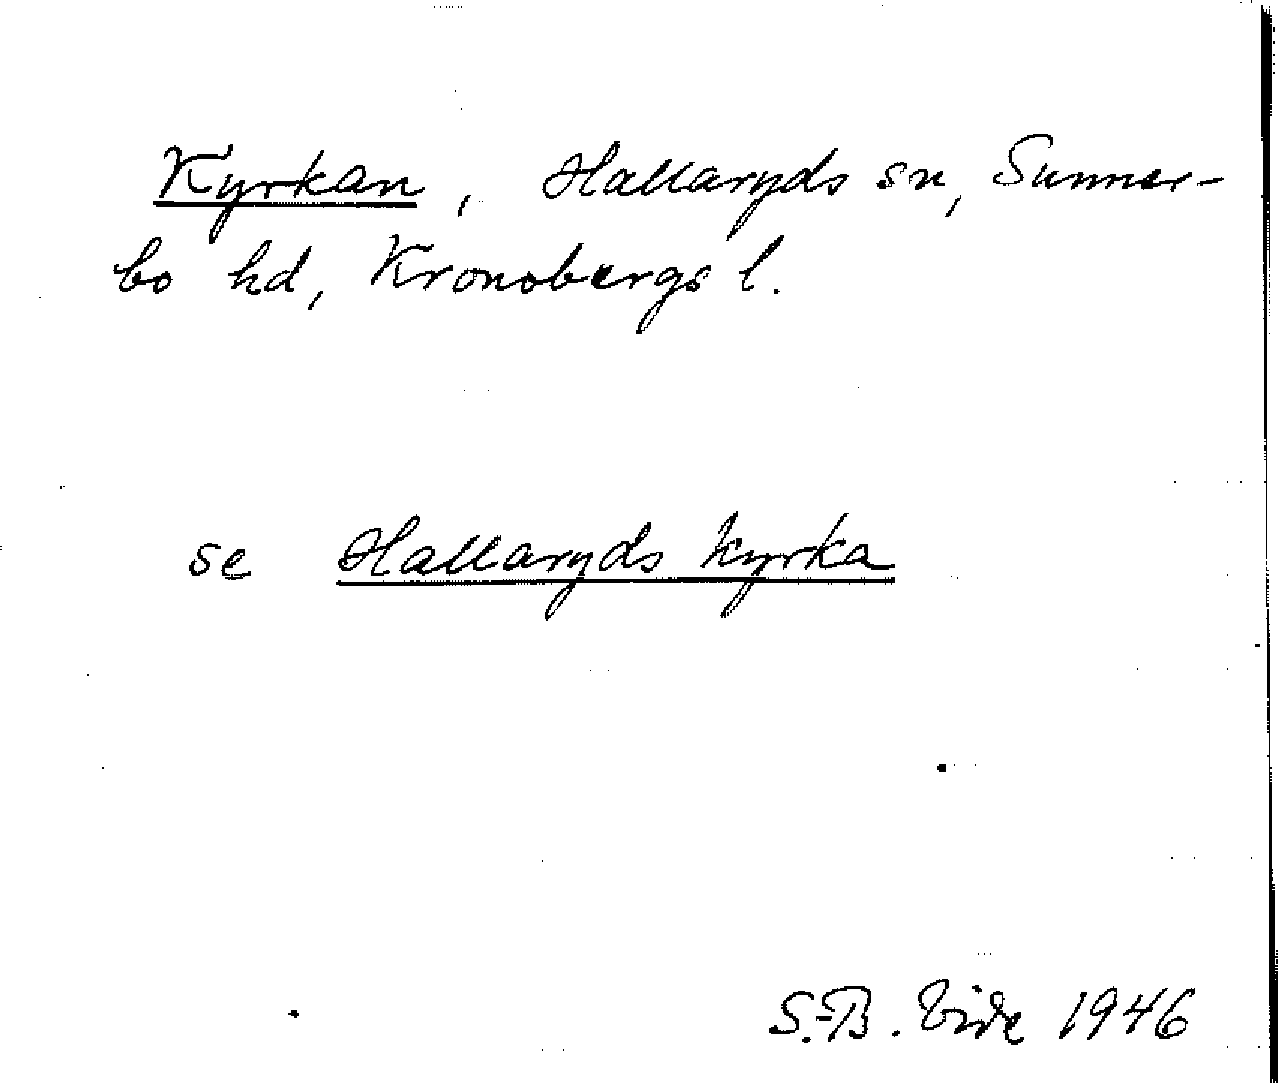 Kyrkan, Hallaryds sn, Sunner-
bo hd, Kronobergs l.
se Hallaryds kyrka
S.-B. Vide 1946